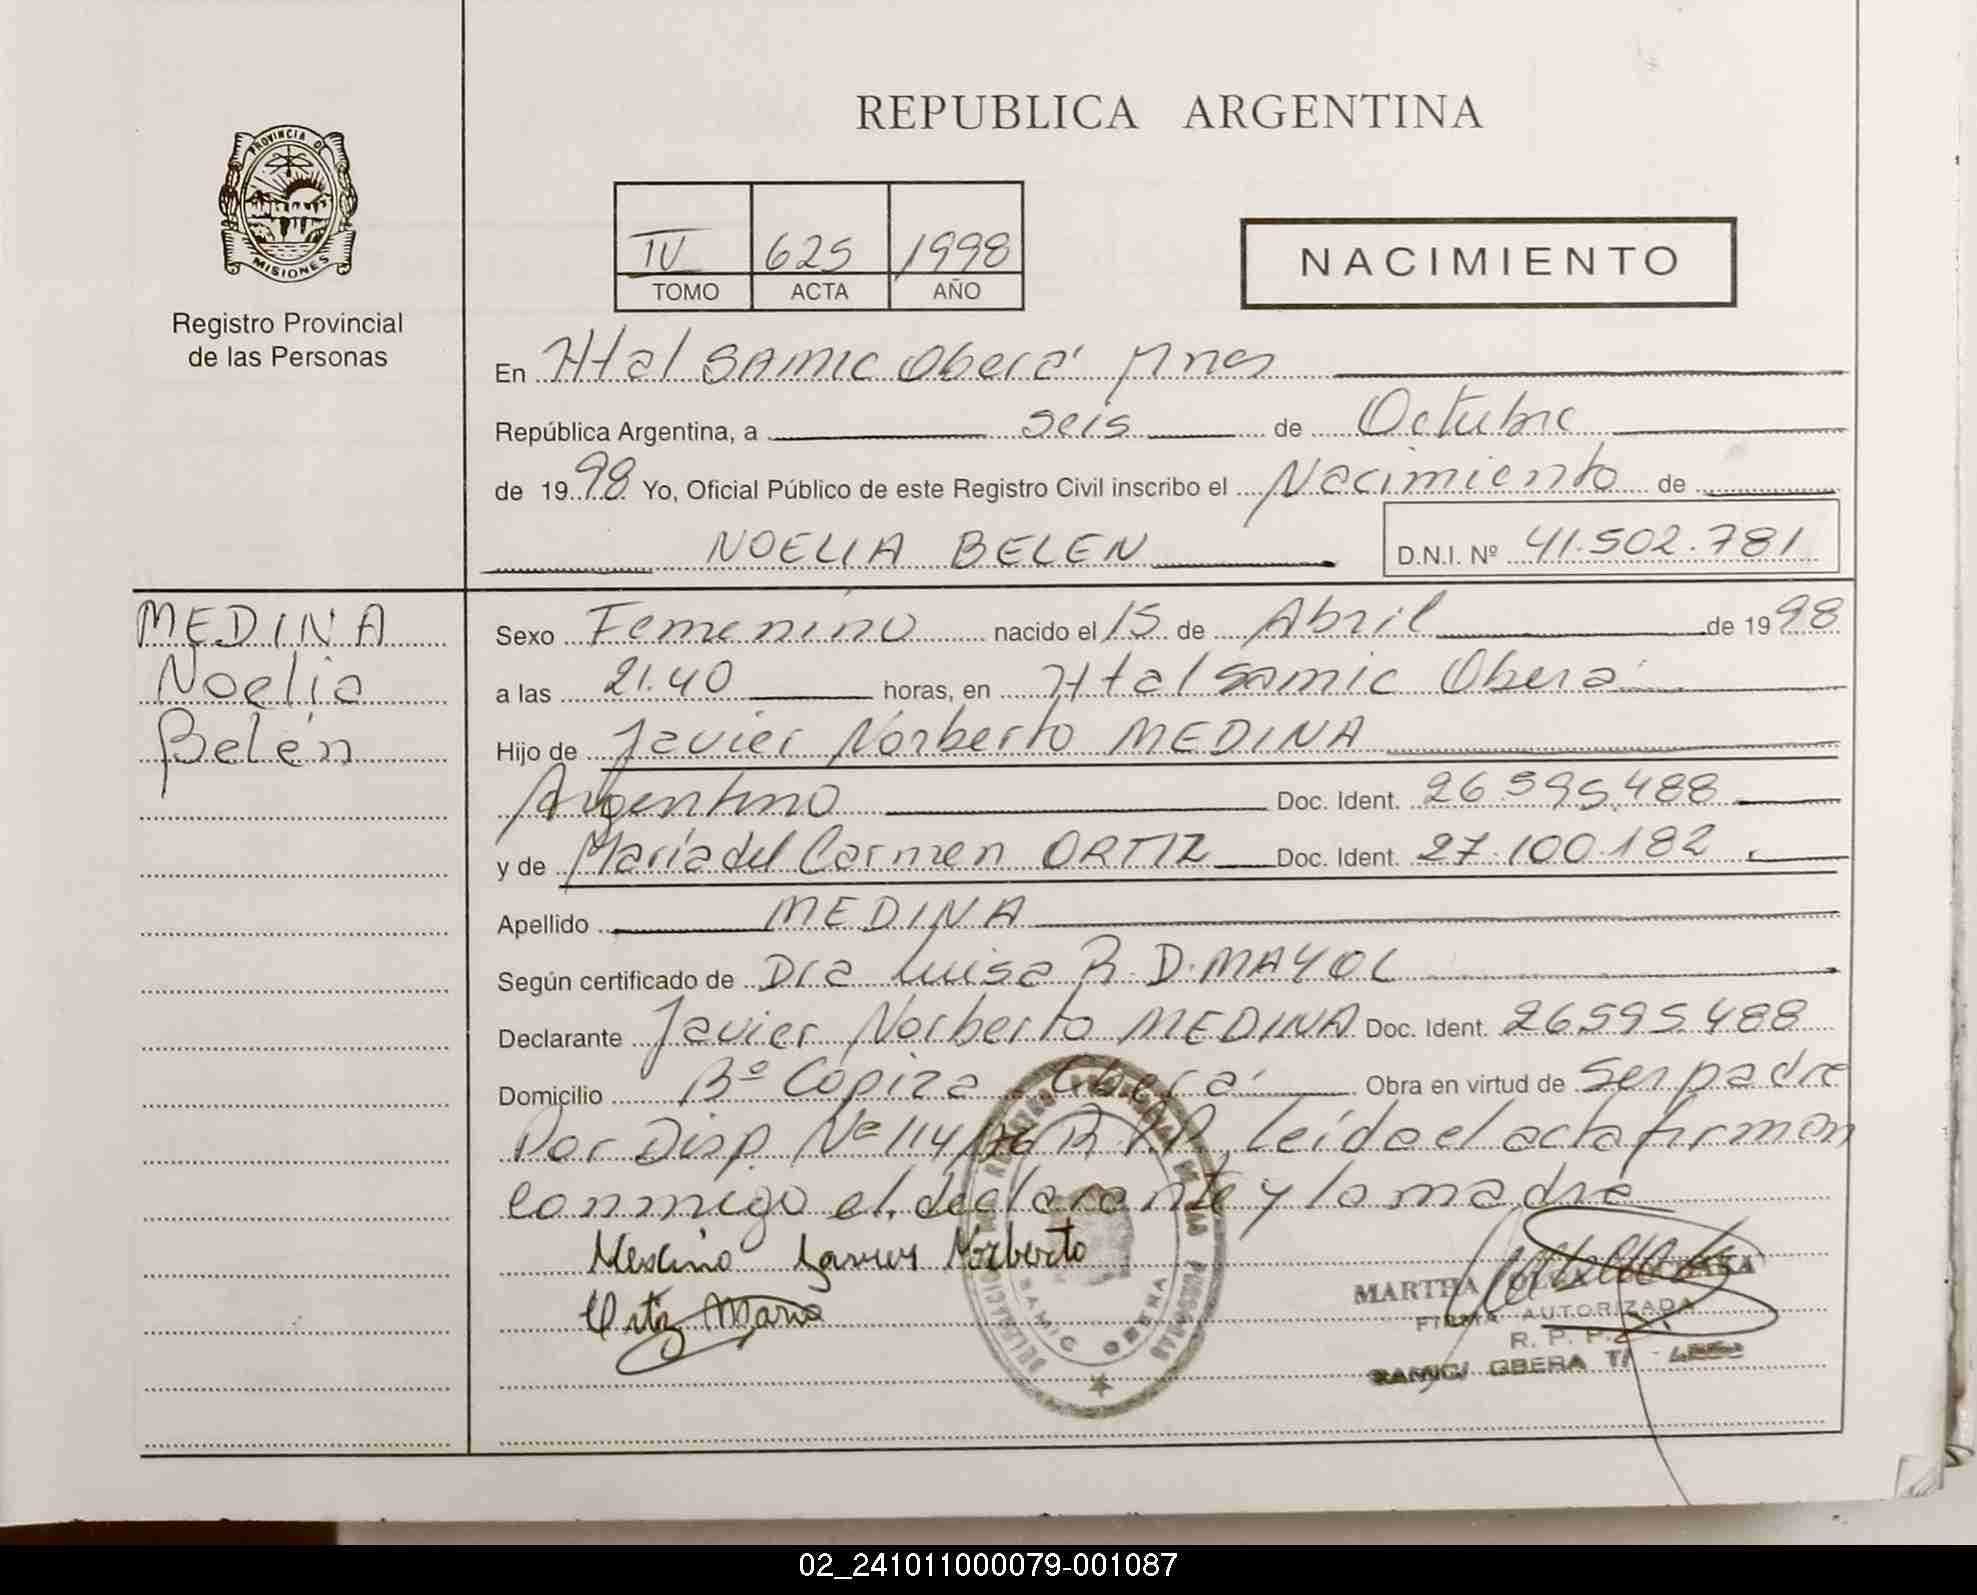 REPUBLICA ARGENTINA
PROVINCIA DE
MISIONES
Registro Provincial
de las Personas
IV 625 1998
TOMO ACTA AÑO
NACIMIENTO
En Htal SAMIC Oberá Mnes
República Argentina, a seis de Octubre
de 1998 Yo, Oficial Público de este Registro Civil inscribo el Nacimiento de
NOELIA BELEN D.N.I. Nº 41.502.781
MEDINA
Noelia
Belén
Sexo Femenino nacido el 15 de Abril de 1998
a las 21.40 horas, en Htal Samic Oberá
Hijo de Javier Norberto MEDINA
Argentino Doc. Ident. 26.595.488
y de María del Carmen ORTIZ Doc. Ident. 27.100.182
Apellido MEDINA
Según certificado de Dra Luisa R. D. MAYOL
Declarante Javier Norberto MEDINA Doc. Ident. 26.595.488
Domicilio Bº Copiza Oberá Obra en virtud de Ser padre
Por Disp. Nº 114/76 R.P.P. Leída el acta firman
conmigo el declarante y la madre
Medina Javier Norberto
Ortiz Maria
SAMIC OBERA
MARTHA
FIRMA AUTORIZADA
R. P. P.
SAMIC/ OBERA
02_241011000079-001087